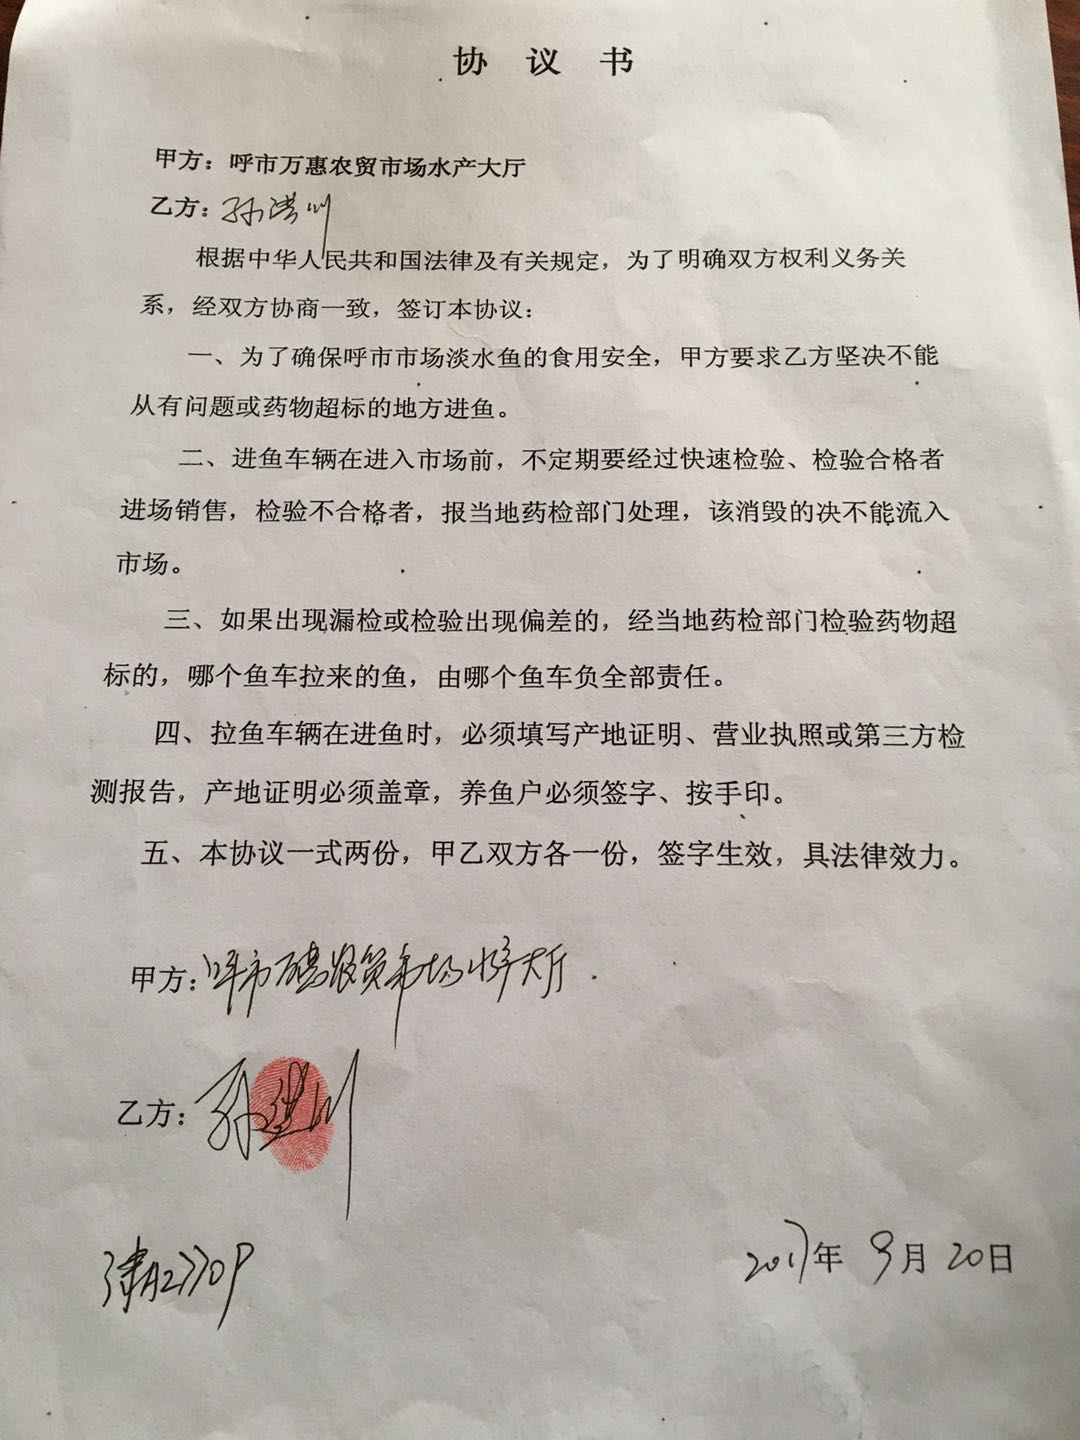 协议书
甲方：呼市万惠农贸市场水产大厅
乙方：孙洪川
根据中华人民共和国法律及有关规定，为了明确双方权利义务关
系，经双方协商一致，签订本协议：
一、为了确保呼市市场淡水鱼的食用安全，甲方要求乙方坚决不能
从有问题或药物超标的地方进鱼。
二、进鱼车辆在进入市场前，不定期要经过快速检验、检验合格者
进场销售，检验不合格者，报当地药检部门处理，该消毁的决不能流入
市场。
三、如果出现漏检或检验出现偏差的，经当地药检部门检验药物超
标的，哪个鱼车拉来的鱼，由哪个鱼车负全部责任。
四、拉鱼车辆在进鱼时，必须填写产地证明、营业执照或第三方检
测报告，产地证明必须盖章，养鱼户必须签字、按手印。
五、本协议一式两份，甲乙双方各一份，签字生效，具法律效力。
甲方：呼市万惠农贸市场水产大厅
乙方：孙洪川
津A27709
2017年9月20日